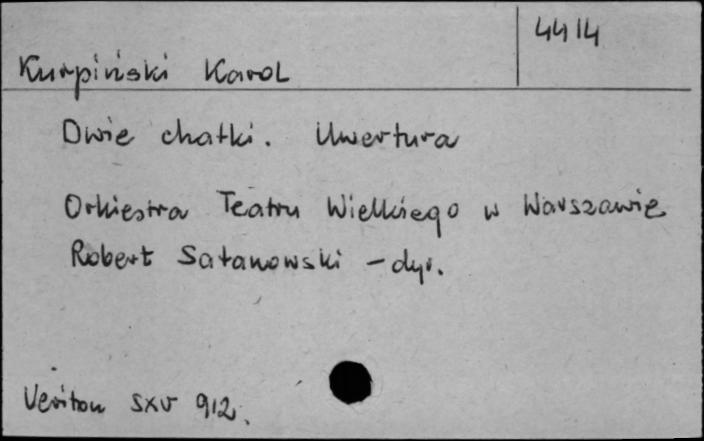 4414
Kurpiński Karol
Dwie chatki. Uwertura
Orkiestra Teatru Wielkiego w Warszawie
Robert Satanowski - dyr.
Veriton SXV 912.